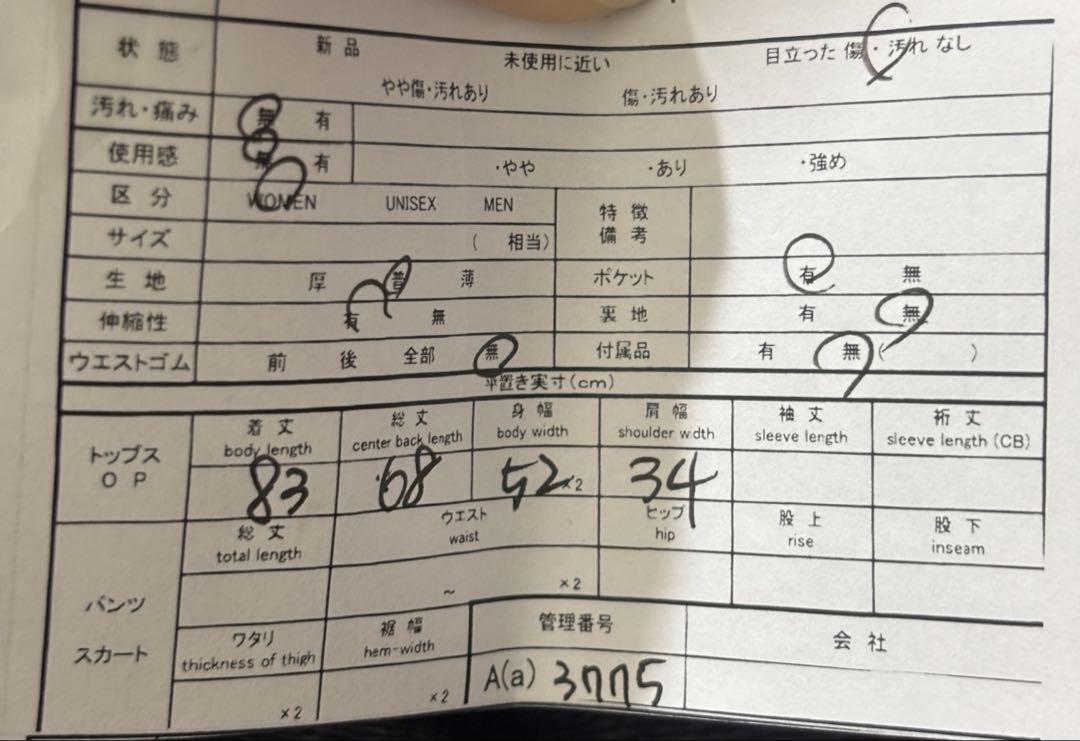 状態 新品 未使用に近い 目立った傷・汚れなし
やや傷・汚れあり 傷・汚れあり
汚れ・痛み 無 有
使用感 無 有 ・やや ・あり ・強め
区分 WOMEN UNISEX MEN 特徴
備考
サイズ ( 相当)
生地 厚 普 薄 ポケット 有 無
伸縮性 有 無 裏地 有 無
ウエストゴム 前 後 全部 無 付属品 有 無 ( )
平置き実寸(cm)
トップス
OP
着丈 総丈 身幅 肩幅 袖丈 裄丈
body length center back length body width shoulder width sleeve length sleeve length (CB)
83 68 52 ×2 34
パンツ
スカート
総丈 ウエスト ヒップ 股上 股下
total length waist hip rise inseam
~ ×2
ワタリ 裾幅 管理番号 会社
thickness of thigh hem-width
×2 ×2 A(a) 3775